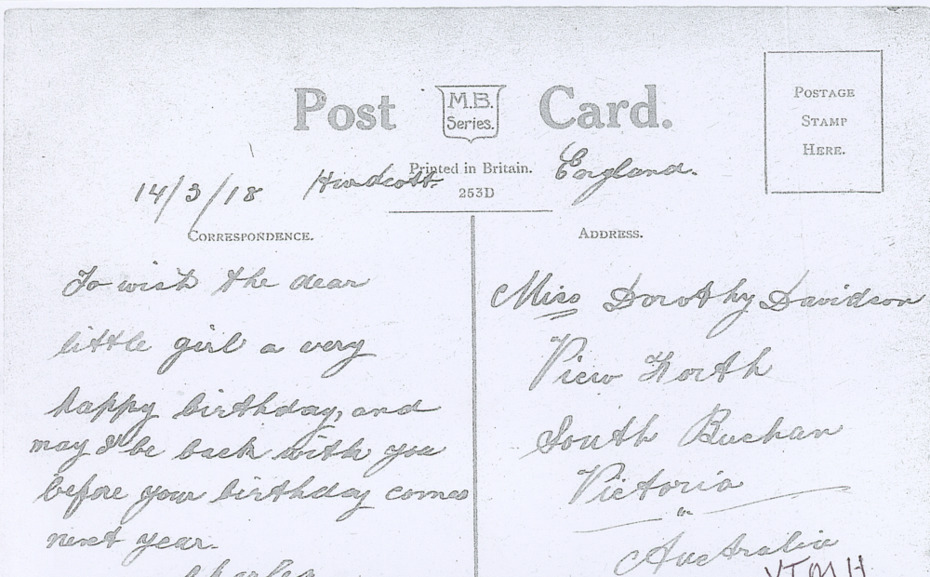 Post Card.
M.B.
Series.
POSTAGE
STAMP
HERE.
Printed in Britain.
253D
14/3/18 Hurdcott. England.
CORRESPONDENCE.
To wish the dear
little girl a very
happy birthday, and
may I be back with you
before your birthday comes
next year.
Charles
ADDRESS.
Miss Dorothy Davidson
View Forth
South Buchan
Victoria
Australia